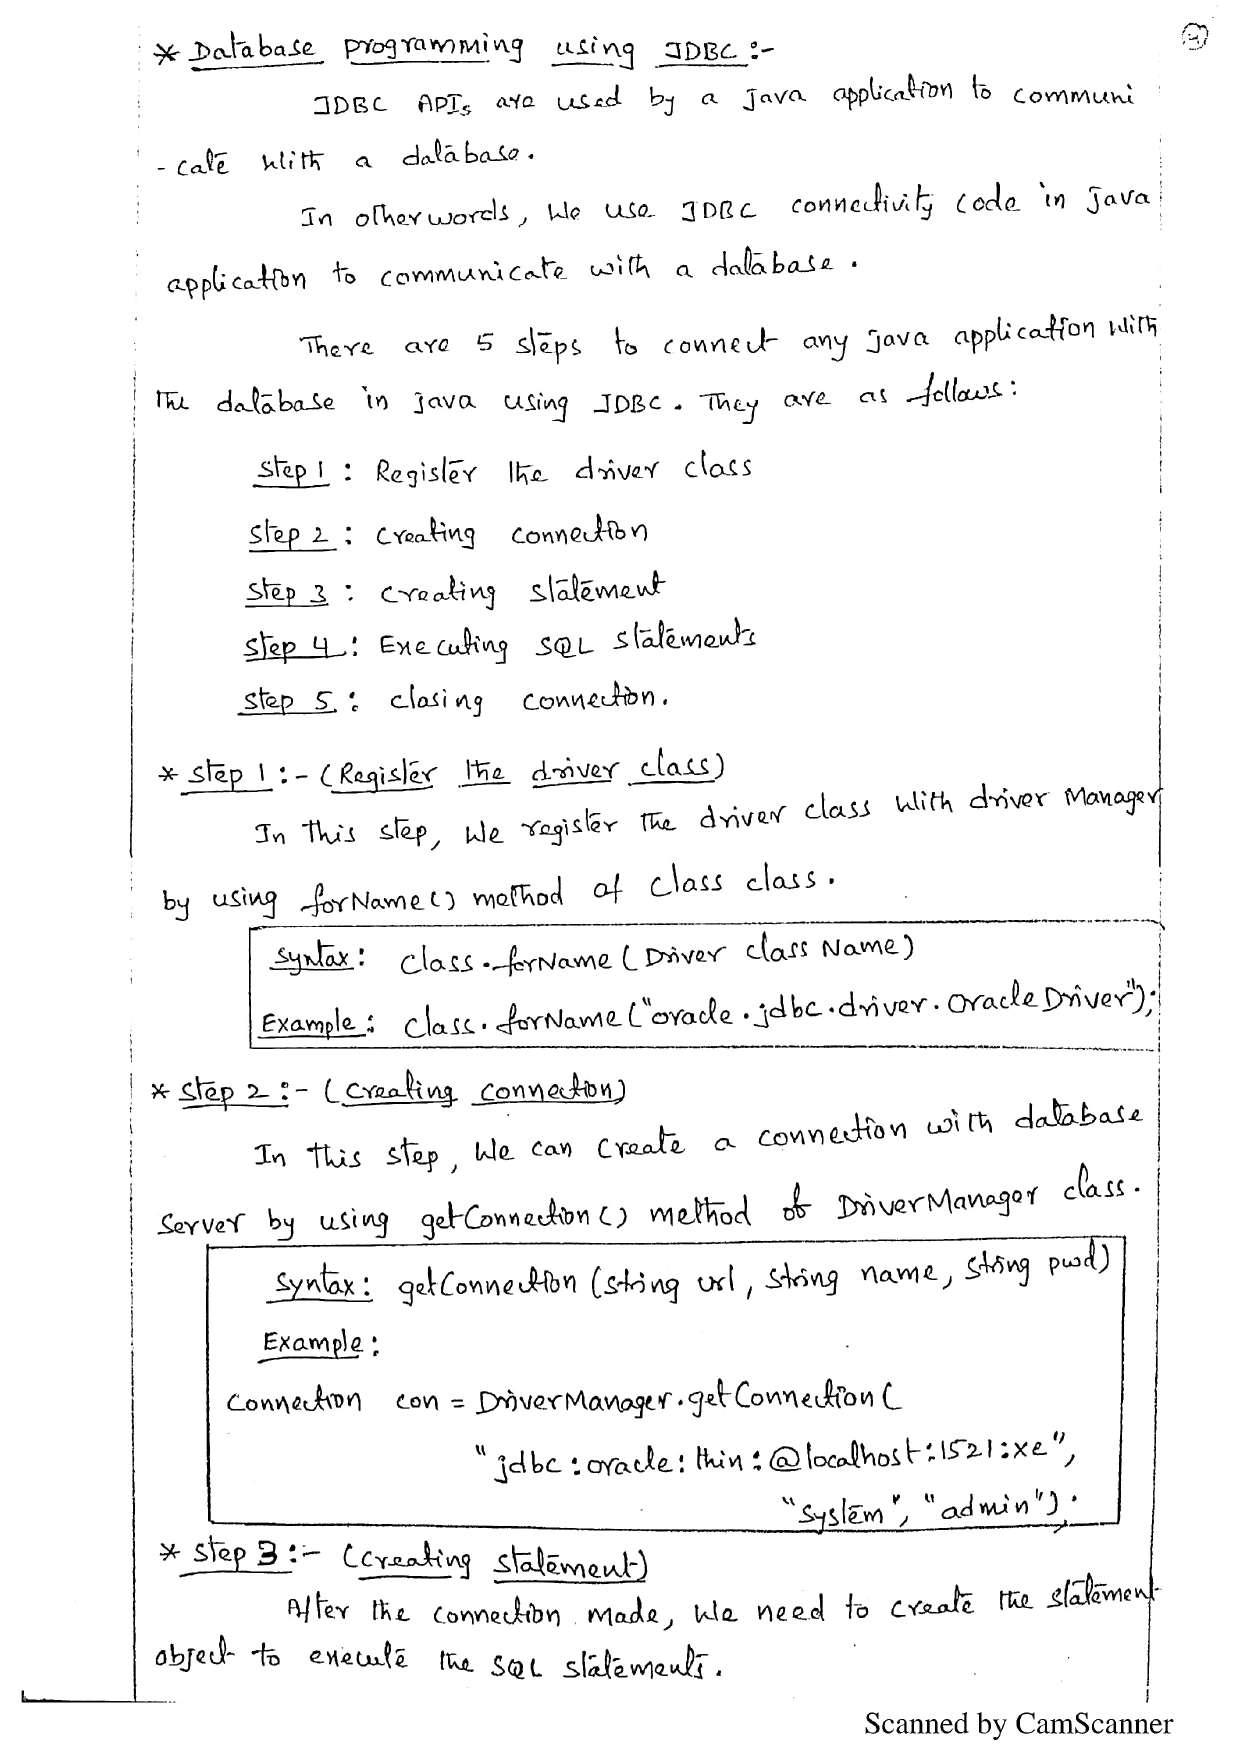 * Database programming using JDBC :-
JDBC APIs are used by a Java application to communi
- cate with a database.
In otherwords, We use JDBC connectivity code in Java
application to communicate with a database.
There are 5 steps to connect any java application with
the database in java using JDBC. They are as follows:
Step 1 : Register the driver class
Step 2 : Creating connection
Step 3 : Creating statement
Step 4 : Executing SQL statements
Step 5 : closing connection.
* Step 1 :- (Register the driver class)
In this step, We register the driver class with driver Manager
by using forName() method of Class class.
Syntax: Class.forName (Driver class Name)
Example: Class.forName ("oracle.jdbc.driver.OracleDriver");
* Step 2 :- (Creating connection)
In this step, We can create a connection with database
Server by using getConnection() method of DriverManager class.
Syntax: getConnection (string url, string name, string pwd)
Example:
Connection con = DriverManager.getConnection (
"jdbc:oracle:thin:@localhost:1521:xe",
"System", "admin");
* Step 3 :- (Creating statement)
After the connection made, We need to create the statement
object to execute the SQL statements.
Scanned by CamScanner